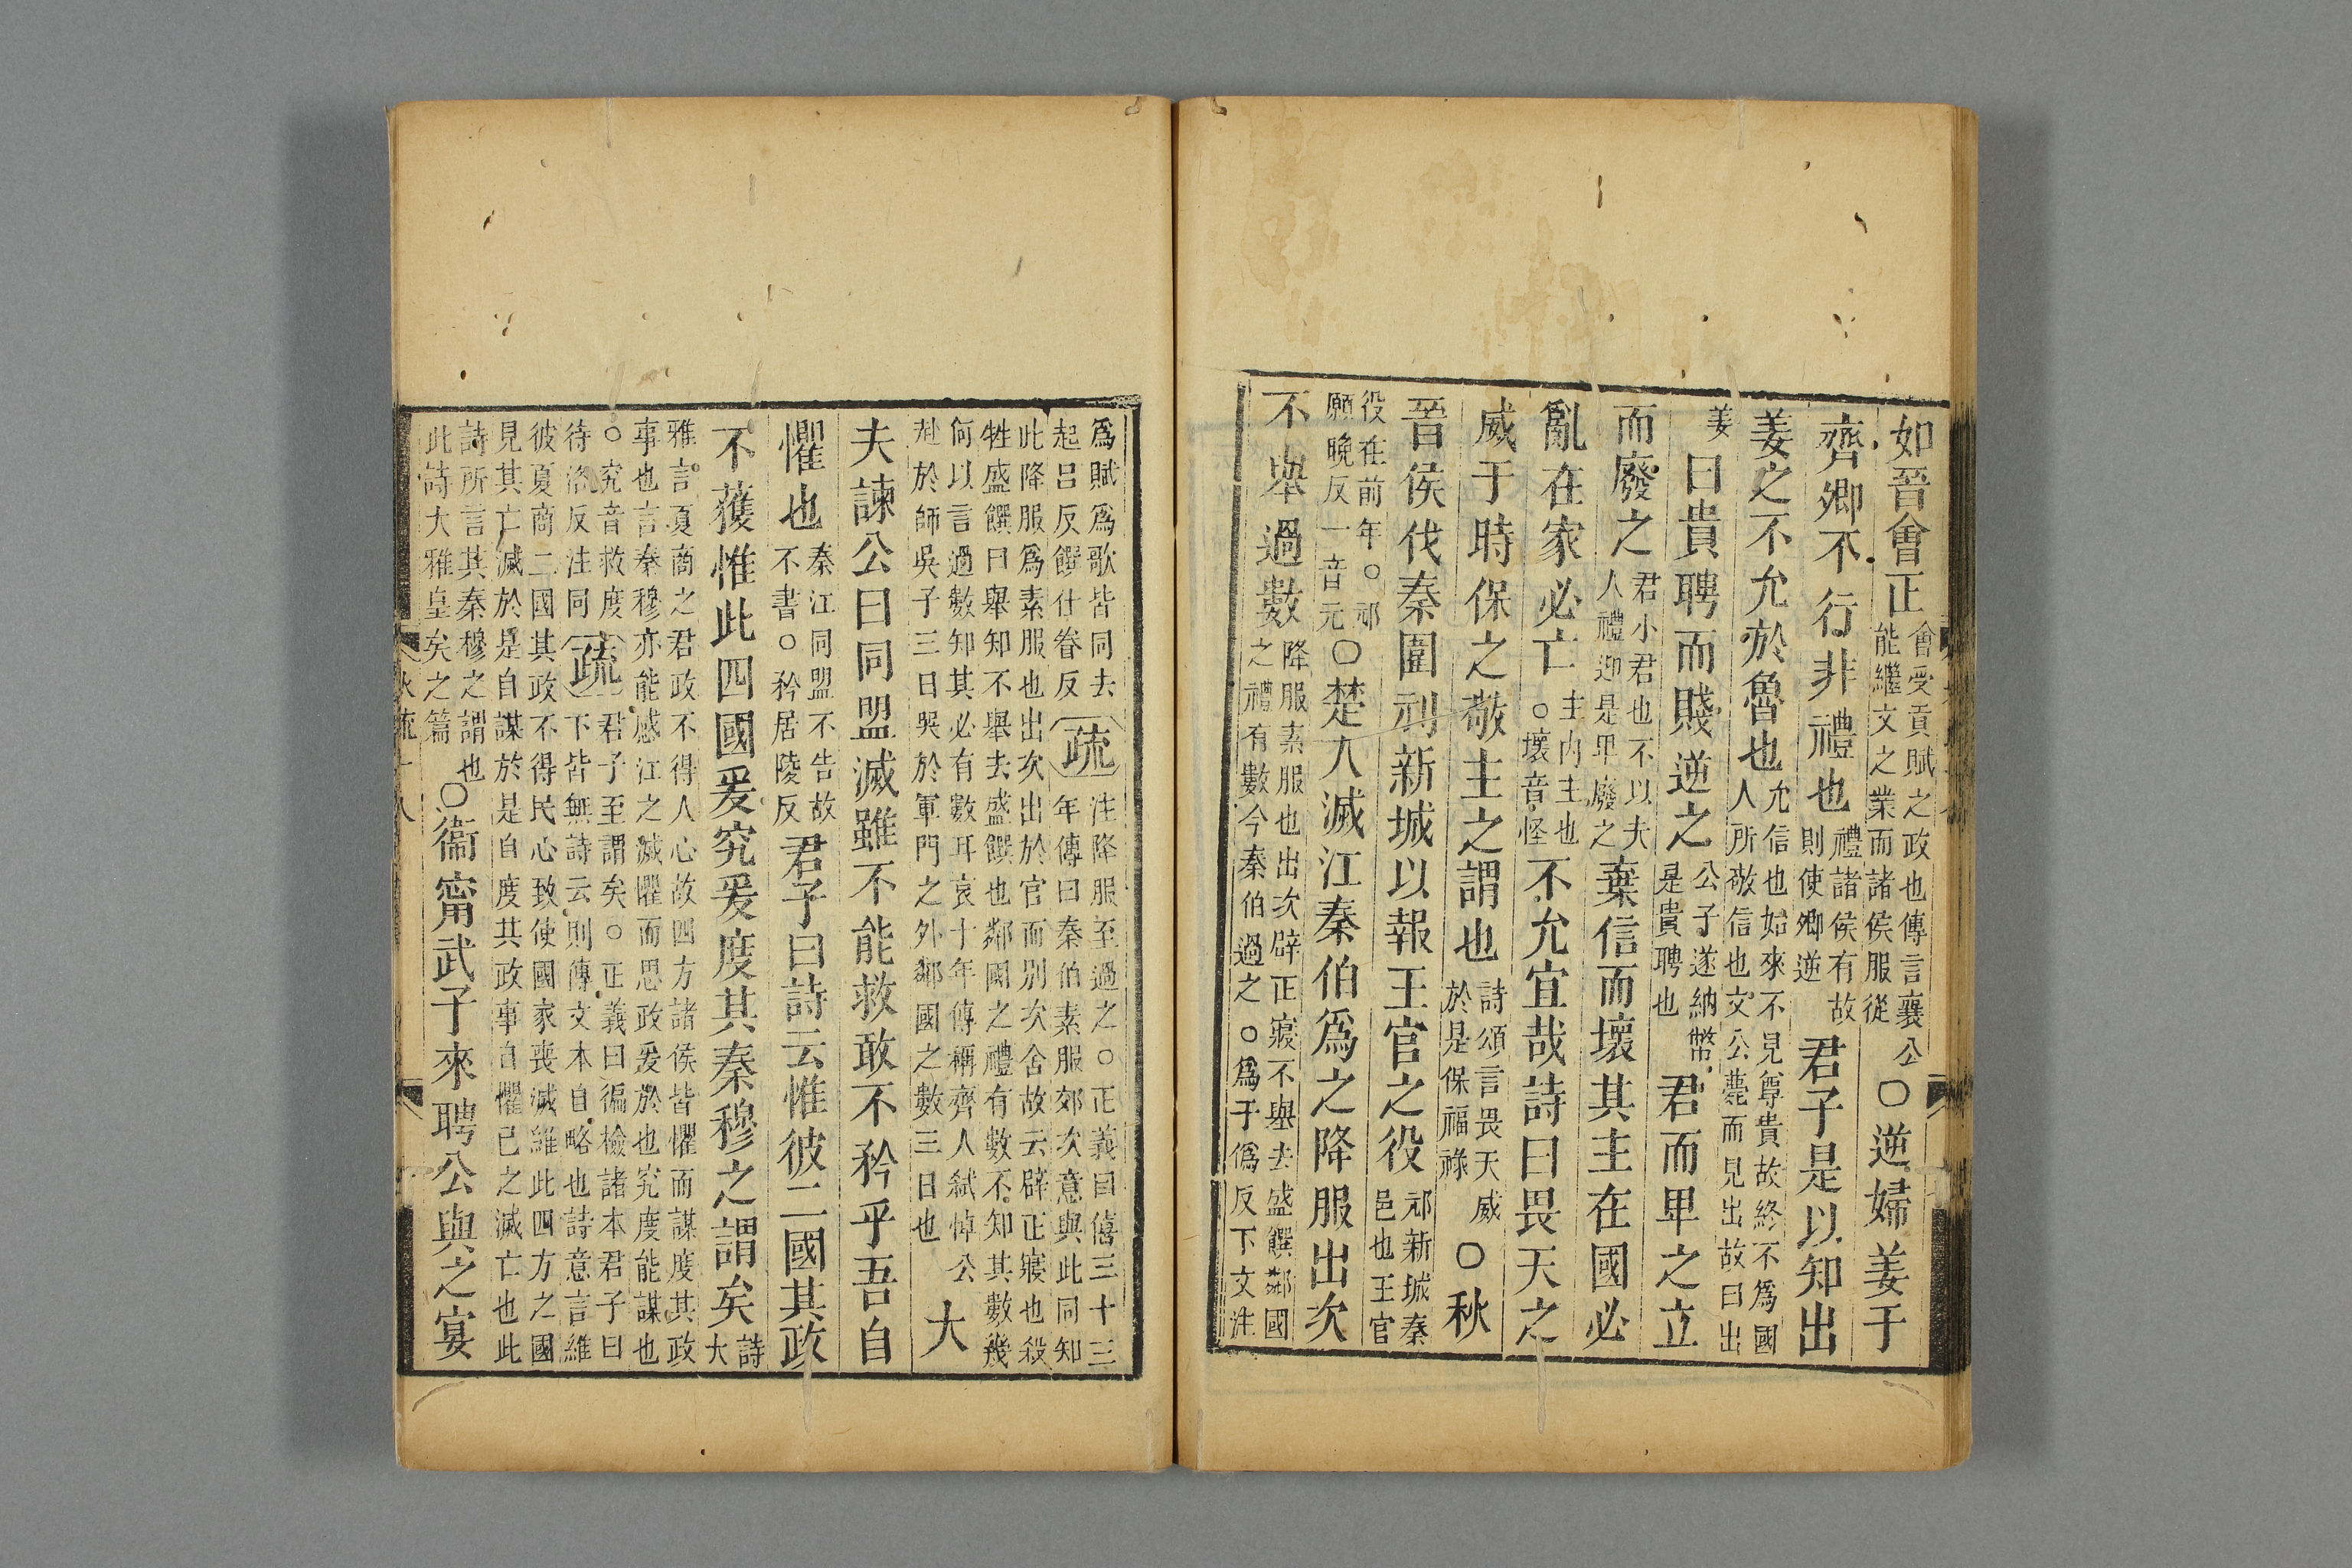 如晉會正會受貢賦之政也傳言襄公能繼文之業而諸侯服從○逆婦姜于
齊卿不行非禮也禮諸侯有故則使卿逆君子是以知出
姜之不允於魯也允信也始來不見尊貴故終不為國人所敬信也文公薨而見出故曰出
姜曰貴聘而賤逆之公子遂納幣是貴聘也君而卑之立
而廢之君小君也不以夫人禮迎是卑廢之棄信而壞其主在國必
亂在家必亡主內主也○壞音怪不允宜哉詩曰畏天之
威于時保之敬主之謂也詩頌言畏天威於是保福祿○秋
晉侯伐秦圍刓新城以報王官之役邧新城秦邑也王官
役在前年○邧願晚反一音元○楚人滅江秦伯爲之降服出次
不舉過數降服素服也出次辟正寢不舉去盛饌鄰國之禮有數今秦伯過之○爲于僞反下文注
爲賦爲歌皆同去起呂反饌仕眷反疏注降服至過之○正義曰僖三十三年傳曰秦伯素服郊次意與此同知
此降服爲素服也出次出於官而別次舍故云辟正寢也殺
牲盛饌曰舉知不舉去盛饌也鄰國之禮有數不知其數幾
何以言過數知其必有數耳哀十年傳稱齊人弒悼公赴於師吳子三日哭於軍門之外鄰國之數三日也大
夫諫公曰同盟滅雖不能救敢不矜乎吾自
懼也秦江同盟不告故不書○矜居陵反君子曰詩云惟彼二國其政
不獲惟此四國爰究爰度其秦穆之謂矣詩大
雅言夏商之君政不得人心故四方諸侯皆懼而謀度其政
事也言秦穆亦能感江之滅懼而思政爰於也究度能謀也
○究音救度待洛反注同疏君子至謂矣○正義曰徧檢諸本君子曰下皆無詩云則傳文本自略也詩意言維
彼夏商二國其政不得民心致使國家喪滅維此四方之國
見其亡滅於是自謀於是自度其政事自懼己之滅亡也此
詩所言其秦穆之謂也此詩大雅皇矣之篇○衞甯武子來聘公與之宴